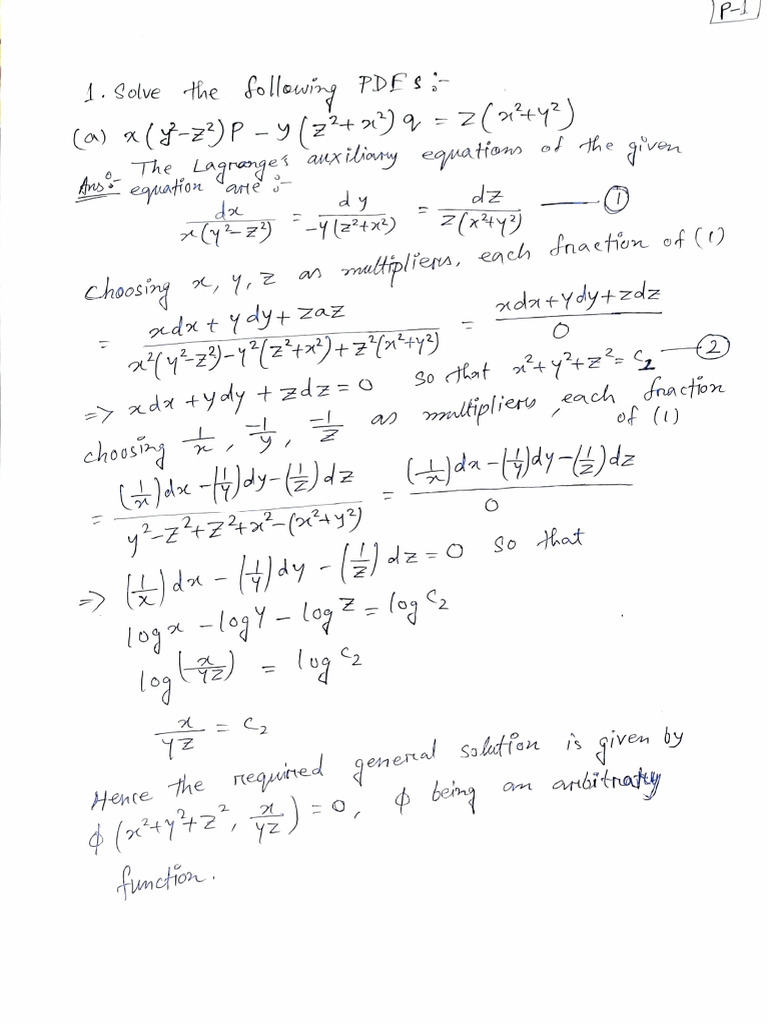 P-1
1. Solve the following PDEs :-
(a) x(y²-z²)P - y(z²+x²)q = z(x²+y²)
Ans:- The Lagrange's auxiliary equations of the given
equation are :-
dx/x(y²-z²) = dy/-y(z²+x²) = dz/z(x²+y²) — ①
Choosing x, y, z as multipliers, each fraction of (1)
= xdx + ydy + zdz/x²(y²-z²)-y²(z²+x²)+z²(x²+y²) = xdx+ydy+zdz/0
=> xdx + ydy + zdz = 0 so that x²+y²+z² = C₁ — ②
choosing 1/x, -1/y, -1/z as multipliers, each fraction of (1)
= (1/x)dx - (1/y)dy - (1/z)dz/y²-z²+z²+x²-(x²+y²) = (1/x)dx - (1/y)dy - (1/z)dz/0
=> (1/x)dx - (1/y)dy - (1/z)dz = 0 so that
logx - logy - logz = logC₂
log(x/yz) = logC₂
x/yz = C₂
Hence the required general solution is given by
ϕ(x²+y²+z², x/yz) = 0, ϕ being an arbitrary
function.